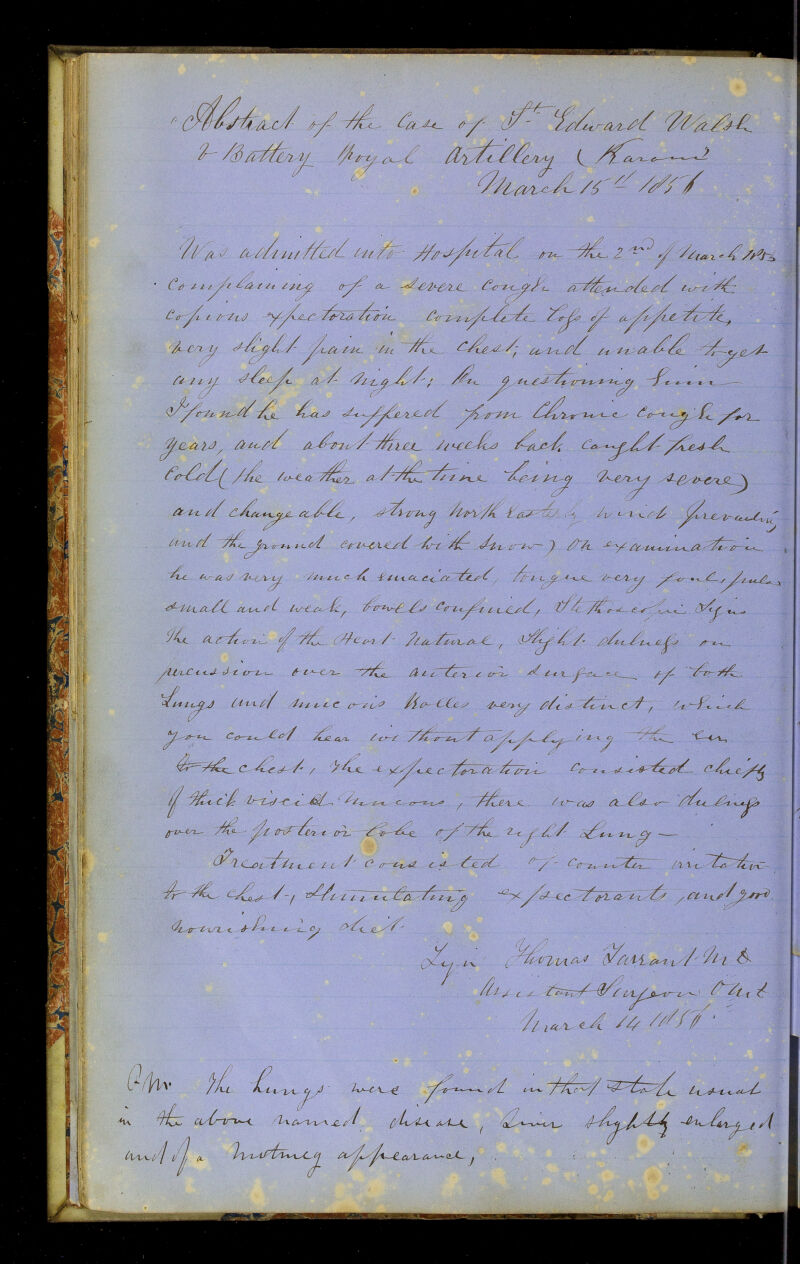 Abstract of the Case of St. Edward Walsh
Battery Royal Artillery
March 15th 1856
Was admitted into Hospital on the 2nd of March
complaining of a severe cough attended with
copious expectoration complete loss of appetite,
very slight pain in the chest, and unable to get
any sleep at night; On questioning him
I found he has suffered from Chronic cough for
years, and about three weeks back caught fresh
cold (the weather at the time being very severe)
and changeable, strong North Easterly wind prevailing
and the ground covered with snow) On examination
he was very much emaciated, tongue very foul, pulse
small and weak, bowels confined, Stethoscopic Signs
The action of the Heart Natural, Slight dulness on
percussion over the anterior surface of both
Lungs and mucous Ralles very distinct, which
you could hear without applying the ear
to the chest, The expectoration consisted chiefly
of thick viscid Mucous, there was also dulness
over the posterior lobe of the right Lung —
Treatment consisted of counter irritation
to the chest, stimulating expectorants, and good
nourishing diet
Thomas Tarrant M.D
Assistant Surgeon
March 14 1856
P.M. The Lungs were found in that state usual
in the above named disease, Liver slightly enlarged
and of a Nutmeg appearance,